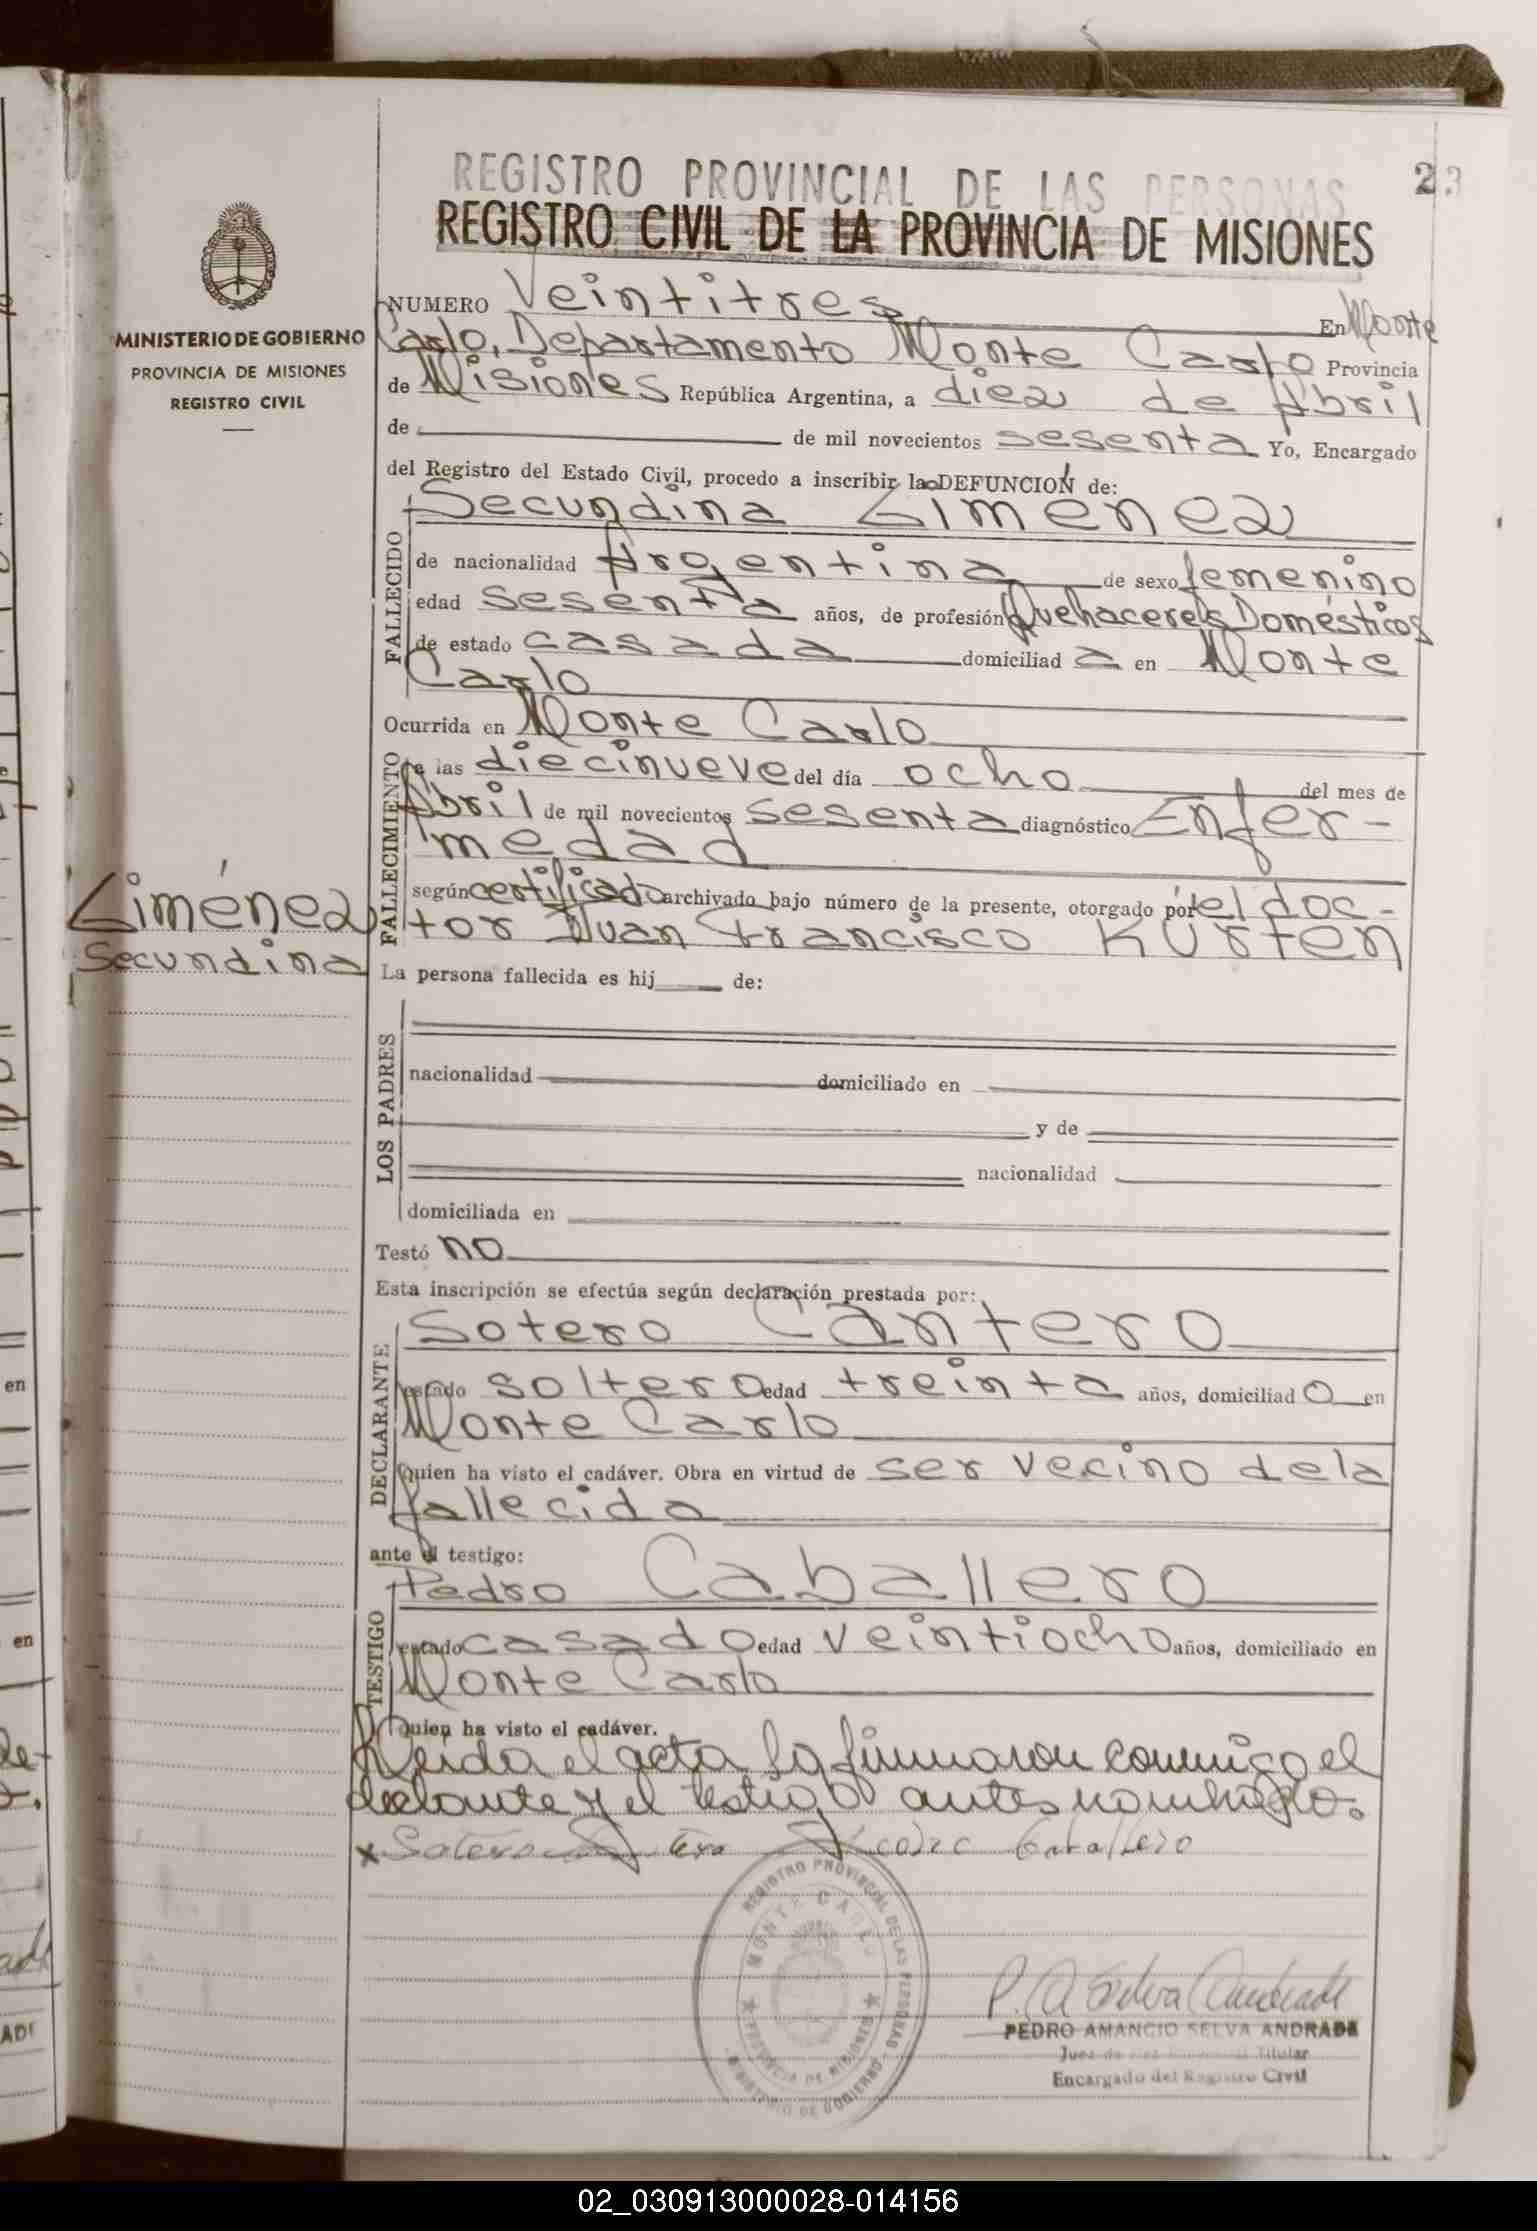 REGISTRO PROVINCIAL DE LAS PERSONAS
23
REGISTRO CIVIL DE LA PROVINCIA DE MISIONES
MINISTERIO DE GOBIERNO
PROVINCIA DE MISIONES
REGISTRO CIVIL
NUMERO Veintitres En Monte
Carlo, Departamento Monte Carlo Provincia
de Misiones República Argentina, a diez de Abril
de de mil novecientos sesenta Yo, Encargado
del Registro del Estado Civil, procedo a inscribir la DEFUNCION de:
FALLECIDO
Secundina Giménez
de nacionalidad Argentina de sexo femenino
edad sesenta años, de profesión Quehaceres Domésticos
de estado casada domiciliad a en Monte
Carlo
Ocurrida en Monte Carlo
FALLECIMIENTO
a las diecinueve del día ocho del mes de
Abril de mil novecientos sesenta diagnóstico Enfer-
medad
según certificado archivado bajo número de la presente, otorgado por el doc-
tor Juan Francisco Kürten
Giménez
Secundina
La persona fallecida es hij de:
LOS PADRES
nacionalidad domiciliado en
y de
nacionalidad
domiciliada en
Testó no
Esta inscripción se efectúa según declaración prestada por:
DECLARANTE
Sotero Cantero
estado soltero edad treinta años, domiciliad o en
Monte Carlo
Quien ha visto el cadáver. Obra en virtud de ser vecino de la
fallecida
ante el testigo:
TESTIGO
Pedro Caballero
estado casado edad veintiocho años, domiciliado en
Monte Carlo
Quien ha visto el cadáver.
Leída el acta la firmaron conmigo el
declarante y el testigo antes nombrado.
Sotero Pedro Caballero
REGISTRO PROVINCIAL DE LAS PERSONAS
MONTE CARLO
PROVINCIA DE MISIONES
MINISTERIO DE GOBIERNO
P. A. Selva Andrade
PEDRO AMANCIO SELVA ANDRADE
Juez de Paz Titular
Encargado del Registro Civil
en
en
02_030913000028-014156